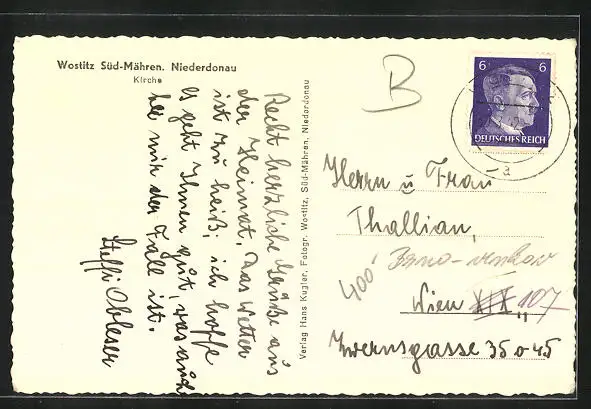 Wostitz Süd-Mähren. Niederdonau
Kirche
Recht herzliche Grüße aus
der Heimat. Das Wetter
ist zu heiß; ich hoffe
es geht Ihnen gut, was auch
bei mir der Fall ist.
Steffi Oblesser
Verlag Hans Kugler, Fotogr. Wostitz, Süd-Mähren, Niederdonau
B
6 6
DEUTSCHES REICH
a
Herrn u Frau
Thallian,
400 Brno-venkov
Wien XIX,, 107
35 o 45